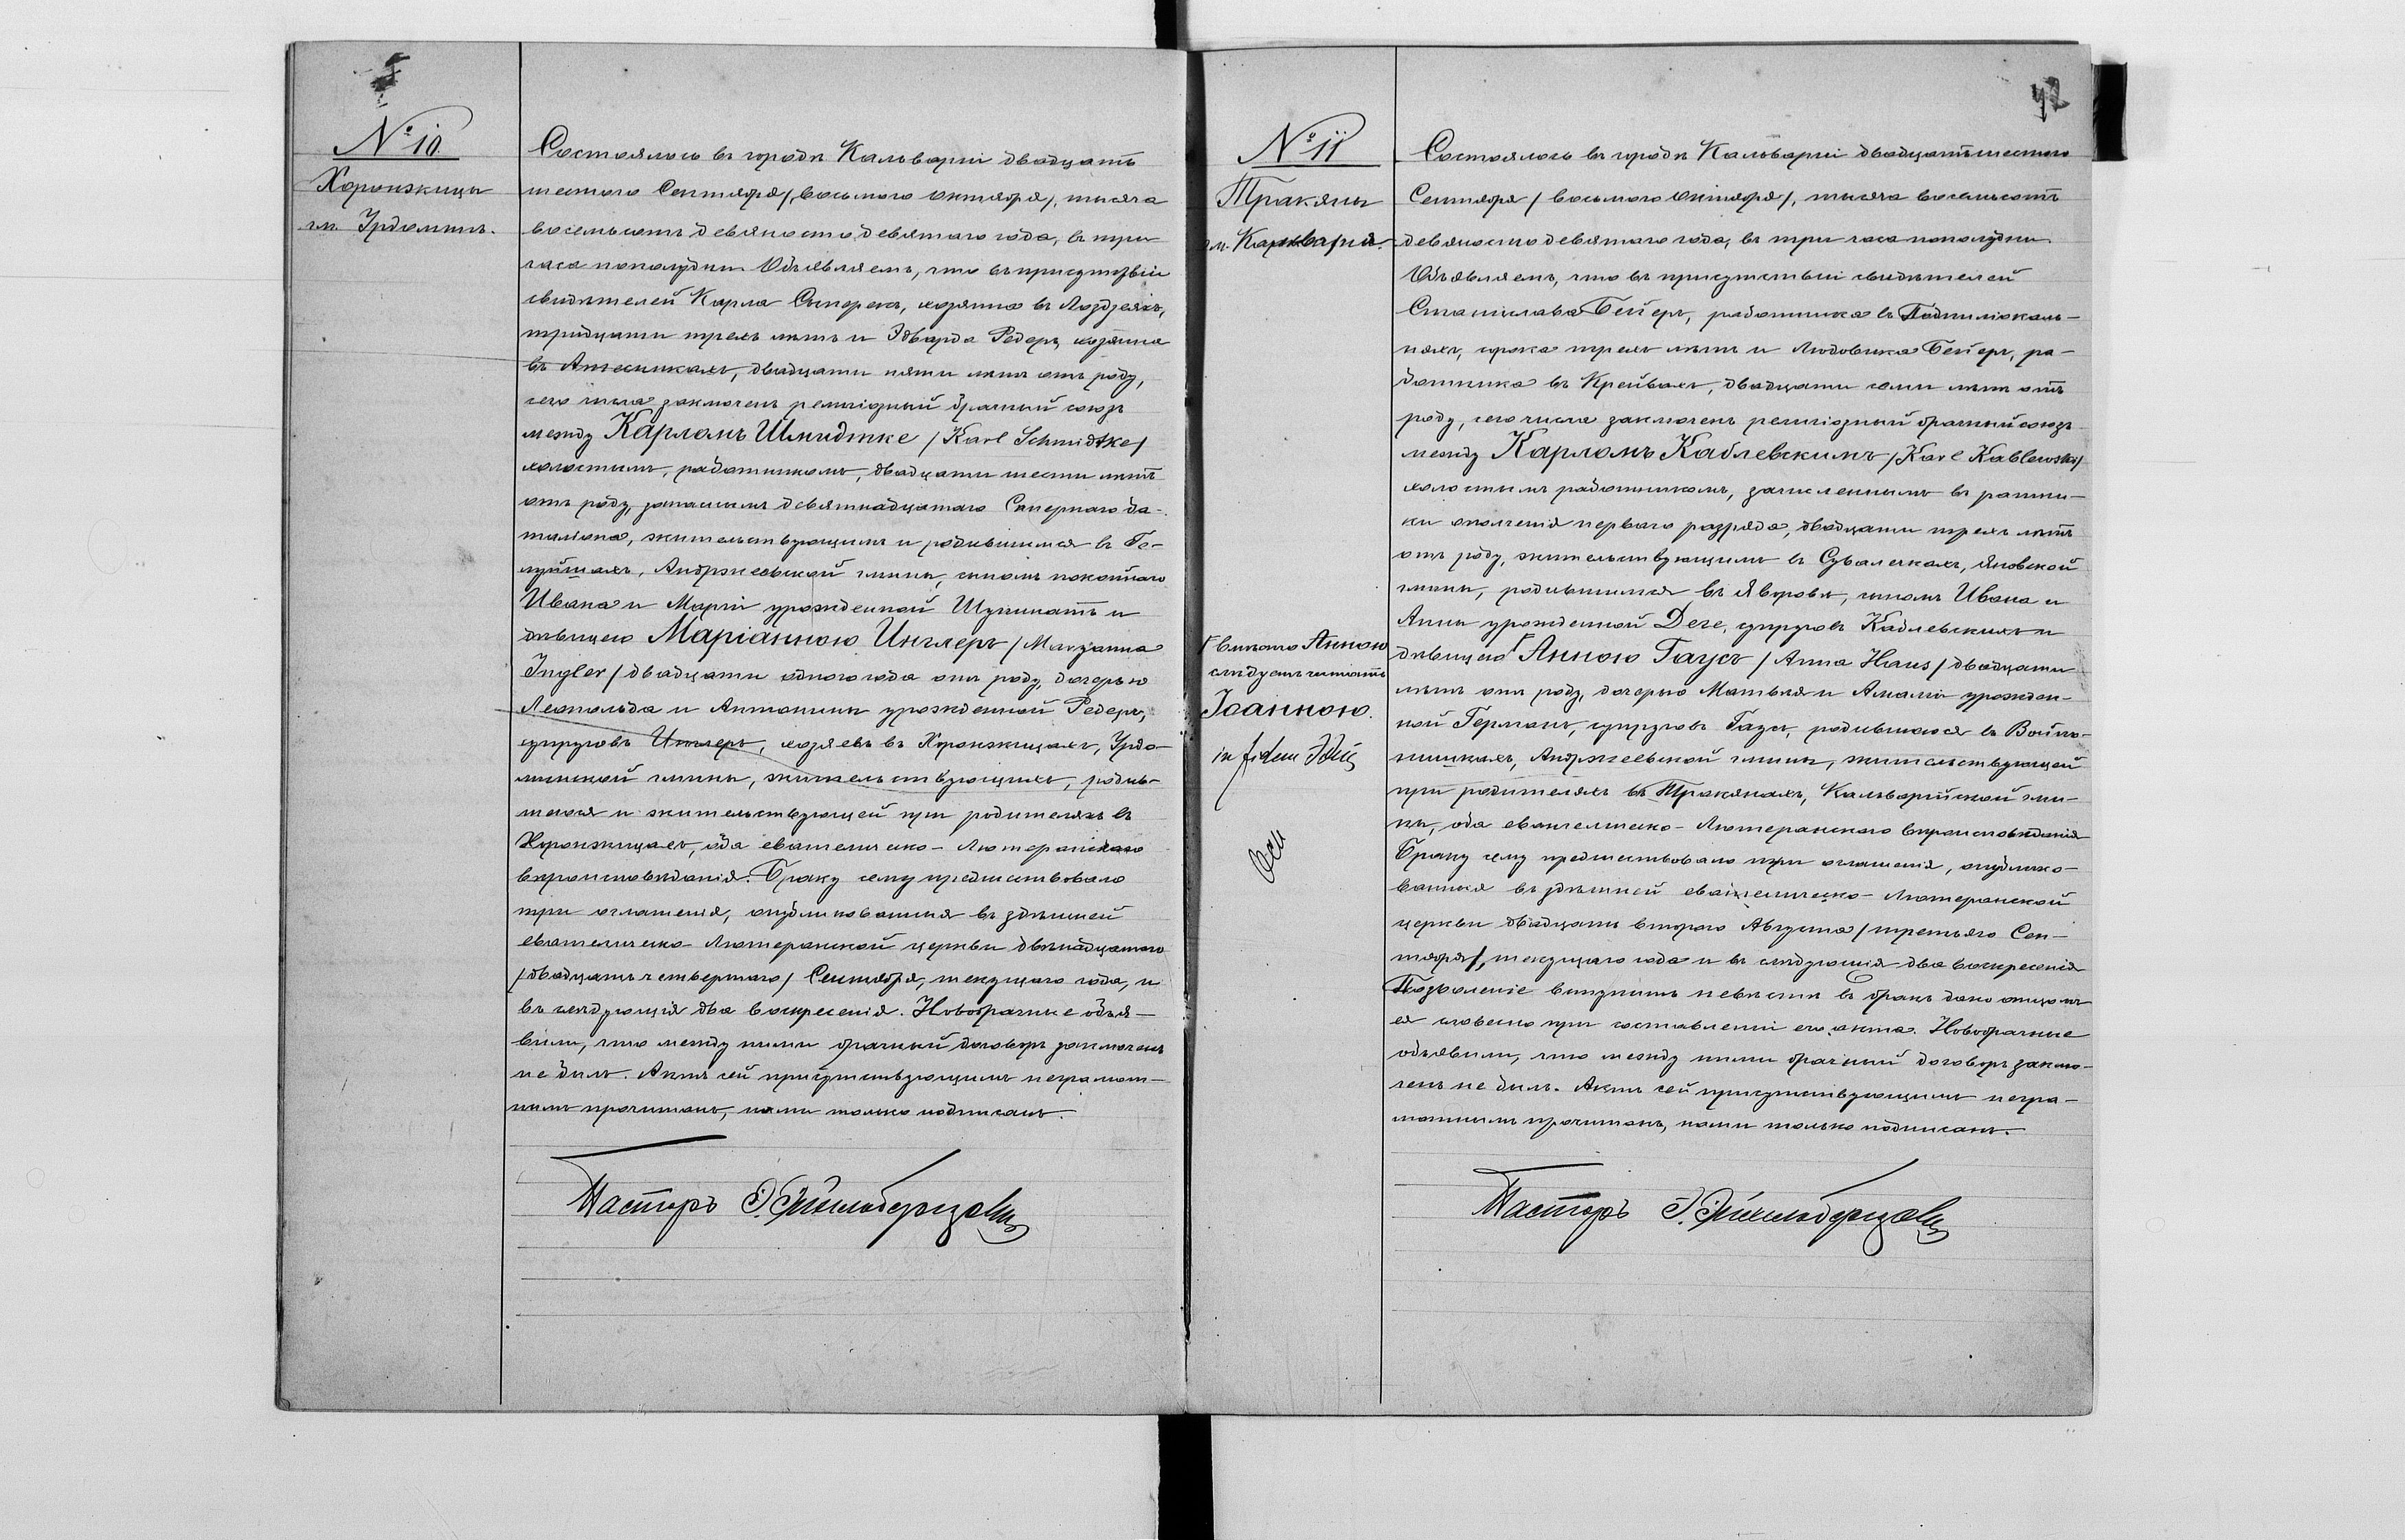 № 10.
Хоронжицы
гм. Урдоминъ.
Состоялось въ городѣ Кальваріи двадцать
шестого Сентября /восьмого Октября/, тысяча
восемьсотъ девяносто девятаго года, въ три
часа пополудни. Объявляемъ, что въ присутствіи
свидѣтелей Карла, хозяина въ Лоздзеяхъ,
тридцати трехъ лѣтъ и Эдварда Редеръ, хозяина
въ, двадцати пяти лѣтъ отъ роду,
сего числа заключенъ религіозный брачный союзъ
между Карломъ Шмидтке /Karl Schmidtke/
холостымъ, работникомъ, двадцати шести лѣтъ
отъ роду, запаснымъ девятнадцатаго Сапернаго ба-
таліона, жительствующимъ и родившимся въ Ге-
, Андржеевской гмины, сыномъ покойнаго
Ивана и Маріи урожденной и
дѣвицею Маріанною Инглеръ /Maryanna
Ingler/ двадцати одного года отъ роду, дочерью
Леопольда и Антонины урожденной Редеръ,
супруговъ Инглеръ, хозяевъ въ Хоронжицахъ, Урдо-
минской гмины, жительствующихъ, родив-
шеюся и жительствующей при родителяхъ въ
Хоронжицахъ, оба евангелическо-Лютеранскаго
вѣроисповѣданія. Браку сему предшествовало
три оглашенія, опубликованныя въ здѣшней
евангелическо-Лютеранской церкви двѣнадцатаго
/двадцать четвертаго/ Сентября, текущаго года, и
въ слѣдующія два воскресенія. Новобрачные объя-
вили, что между ними брачный договоръ заключенъ
не былъ. Актъ сей присутствующимъ неграмот-
нымъ прочитанъ, нами только подписанъ.
Пасторъ
42
№ 11
Тракяны
гм. Кальварія.
Состоялось въ городѣ Кальваріи двадцать шестого
Сентября /восьмого Октября/, тысяча восемьсотъ
девяносто девятаго года, въ три часа пополудни.
Объявляемъ, что въ присутствіи свидѣтелей
Станислава Бейеръ, работника въ
, сорока трехъ лѣтъ и Людовика Бейеръ, ра-
ботника въ Крейвахъ, двадцати семи лѣтъ отъ
роду, сего числа заключенъ религіозный брачный союзъ
между Карломъ Каблевскимъ /Karl Kablewski/
холостымъ работникомъ, зачисленнымъ въ ратни-
ки ополченія перваго разряда, двадцати трехъ лѣтъ
отъ роду, жительствующимъ въ Сувалкахъ, Яновской
гмины, родившимся въ Яворовѣ, сыномъ Ивана и
Анны урожденной Деге, супруговъ Каблевскихъ и
дѣвицею Анною Гаусъ /Anna Haus/ двадцати
лѣтъ отъ роду, дочерью Матвѣя и Амаліи урожден-
ной Германъ, супруговъ Гаусъ, родившеюся въ Войпо-
нишкахъ, Андржеевской гмины, жительствующей
при родителяхъ въ Тракянахъ, Кальварійской гми-
ны, оба евангелическо-Лютеранскаго вѣроисповѣданія
Браку сему предшествовало три оглашенія, опублико-
ванныя въ здѣшней евангелическо-Лютеранской
церкви двадцать второго Августа /третьяго Сен-
тября/, текущаго года и въ слѣдующія два воскресенія
Позволеніе вступить невѣстѣ въ бракъ дано отцомъ
ея словесно при составленіи сего акта. Новобрачные
объявили, что между ними брачный договоръ заклю-
ченъ не былъ. Актъ сей присутствующимъ негра-
мотнымъ прочитанъ, нами только подписанъ.
Пасторъ
вмѣсто Анною
слѣдуетъ читать
Іоанною.
in fidem